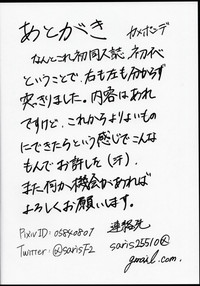 あとがき カメホンデ
なんとこれ初同人誌 初代
ということで、右も左も分からず
突っ走りました。内容はあれ
ですけど、これからよりよいもの
にできたらという感じでこんな
もんでお許し(汗)。
また何か機会があれば
よろしくお願いします。
PixivID: 05840807 連絡先
Twitter: @saris72 saris25510@
gmail.com.